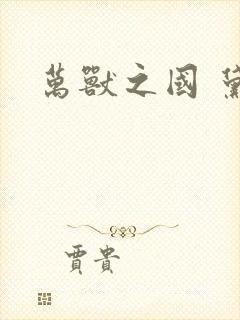 萬獸之國
賈貴